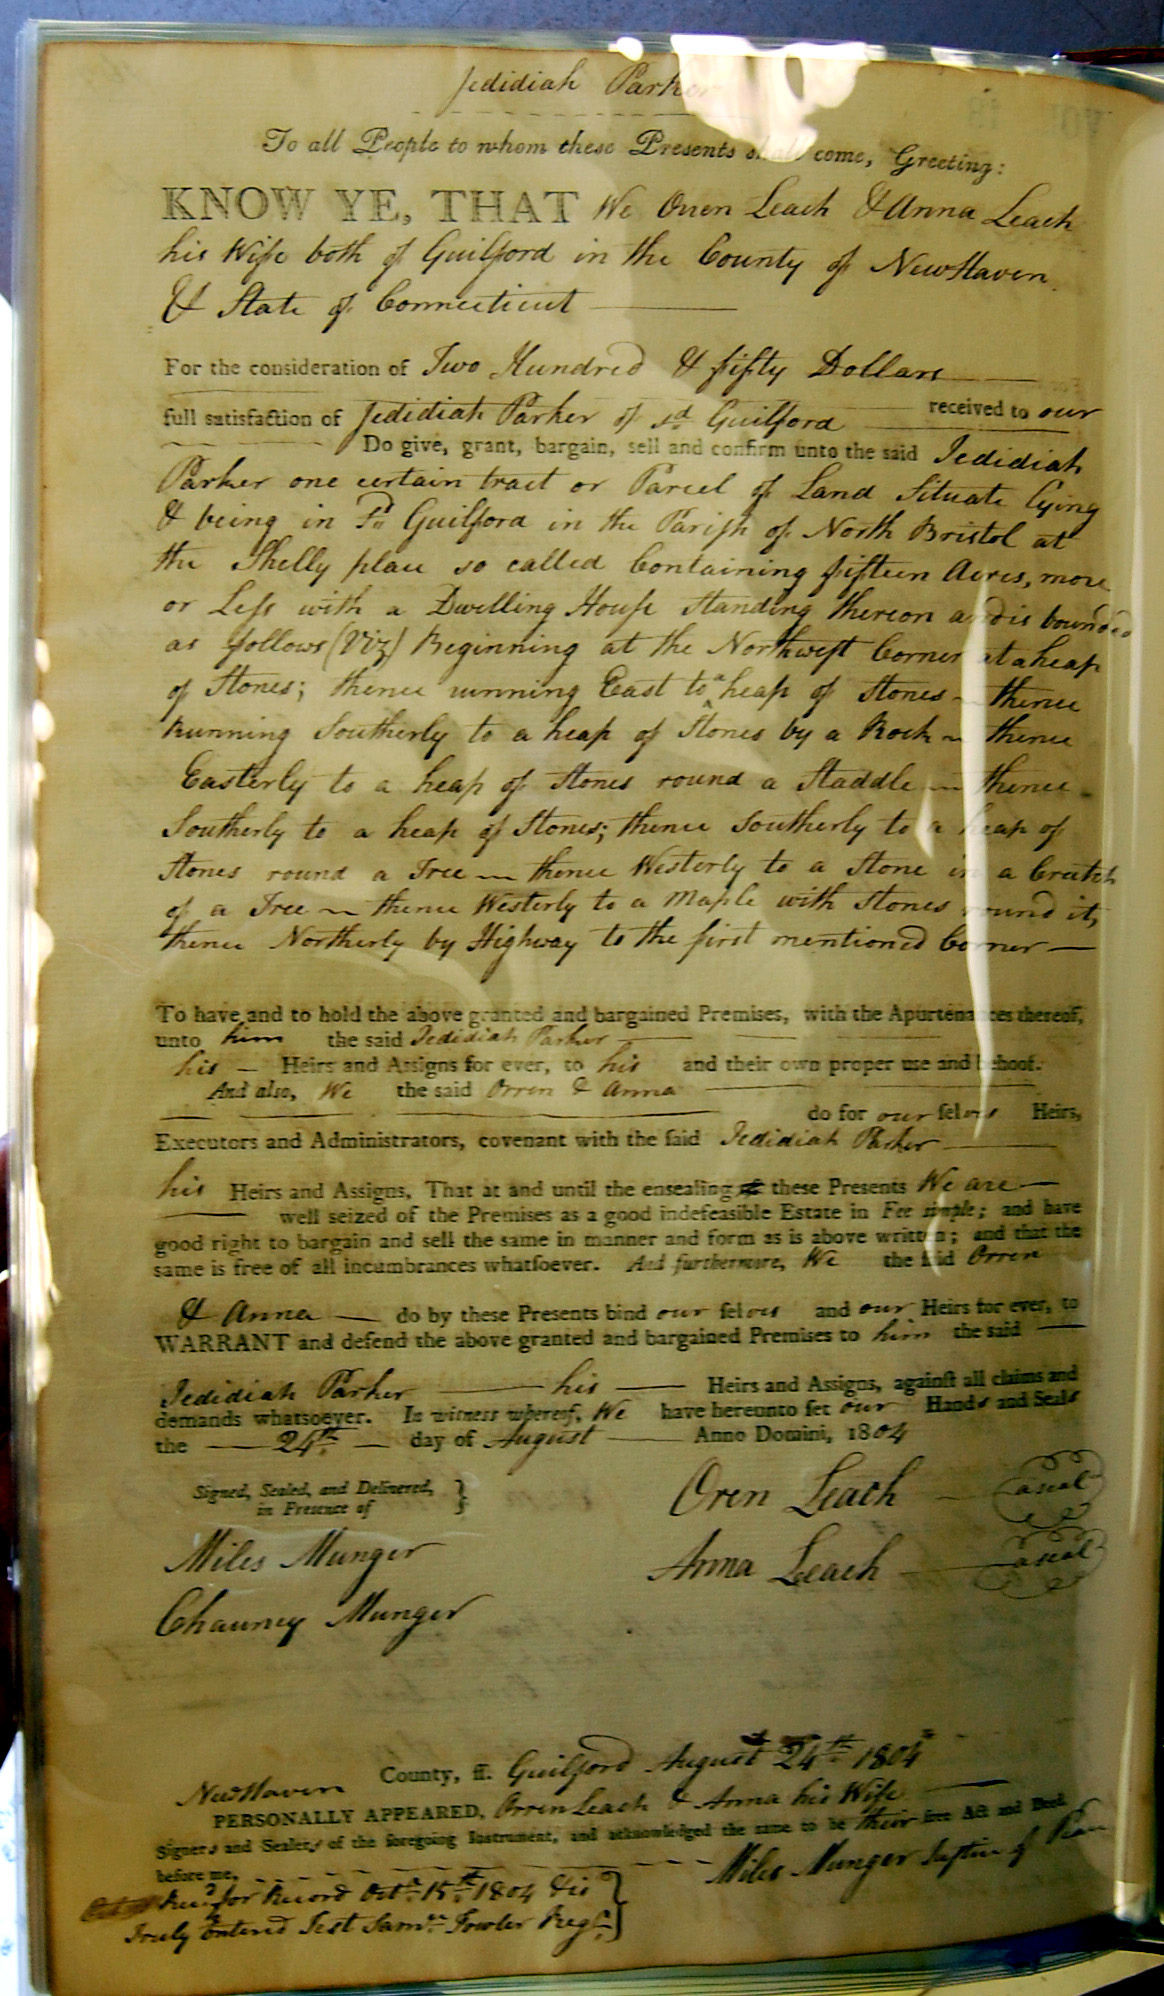 Jedidiah Parker
To all People to whom these Presents shall come, Greeting:
KNOW YE, THAT We Orren Leach & Anna Leach
his Wife both of Guilford in the County of New Haven
& State of Connecticut
For the consideration of Two Hundred & fifty Dollars
received to our
full satisfaction of Jedidiah Parker of sd Guilford
Do give, grant, bargain, sell and confirm unto the said Jedidiah
Parker one certain tract or Parcel of Land Situate lying
& being in sd Guilford in the Parish of North Bristol at
the Shelly place so called Containing fifteen Acres, more
or Less with a Dwelling House Standing thereon and is bounded
as follows (Viz) Beginning at the Northwest Corner at a heap
of Stones; thence running East to a heap of Stones thence
Running Southerly to a heap of Stones by a Rock thence
Easterly to a heap of Stones round a Staddle thence
Southerly to a heap of Stones; thence Southerly to a heap of
Stones round a Tree thence Westerly to a Stone in a Crutch
of a Tree thence Westerly to a Maple with Stones round it,
thence Northerly by Highway to the first mentioned Corner
To have and to hold the above granted and bargained Premises, with the Apurtenances thereof,
unto him the said Jedidiah Parker
his Heirs and Assigns for ever, to his and their own proper use and behoof.
And also, We the said Orren & Anna
do for our selves Heirs,
Executors and Administrators, covenant with the said Jedidiah Parker
his Heirs and Assigns, That at and until the ensealing of these Presents We are
well seized of the Premises as a good indefeasible Estate in Fee simple; and have
good right to bargain and sell the same in manner and form as is above written; and that the
same is free of all incumbrances whatsoever. And furthermore, We the said Orren
& Anna do by these Presents bind our selves and our Heirs for ever, to
WARRANT and defend the above granted and bargained Premises to him the said
Jedidiah Parker his Heirs and Assigns, against all claims and
demands whatsoever. In witness whereof, We have hereunto set our Hands and Seals
the 24th day of August Anno Domini, 1804
Signed, Sealed, and Delivered, }
in Presence of
Oren Leach a seal
Miles Munger
Anna Leach a seal
Chauncy Munger
New Haven County, ss. Guilford August 24th 1804
PERSONALLY APPEARED, Orren Leach & Anna his Wife
Signers and Sealers of the foregoing Instrument, and acknowledged the same to be their free Act and Deed
before me, Miles Munger Justice of Peace
Recd for Record Octr 15th 1804 & is
Truly Entered Test Saml Fowler Regr